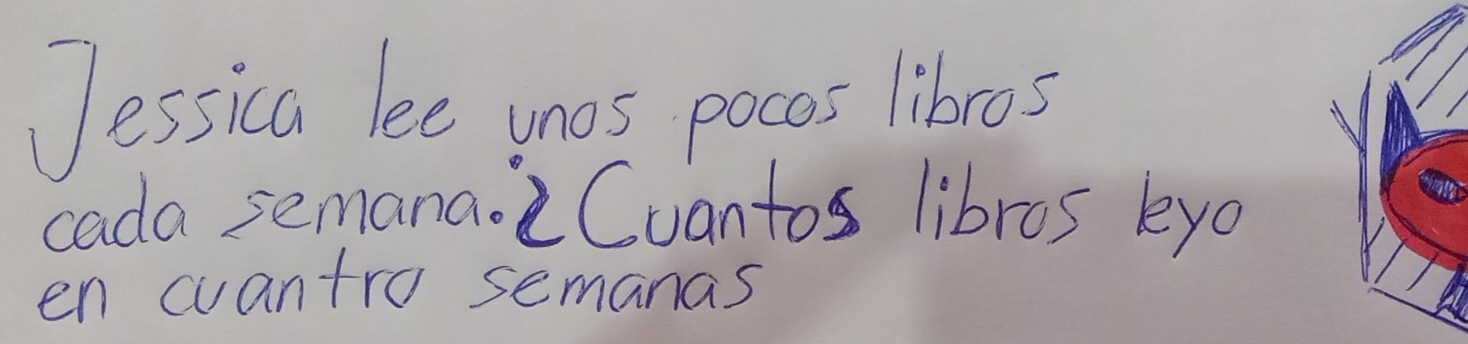 Jessica lee unos pocos libros
cada semana. ¿Cuantos libros leyo
en cuantro semanas